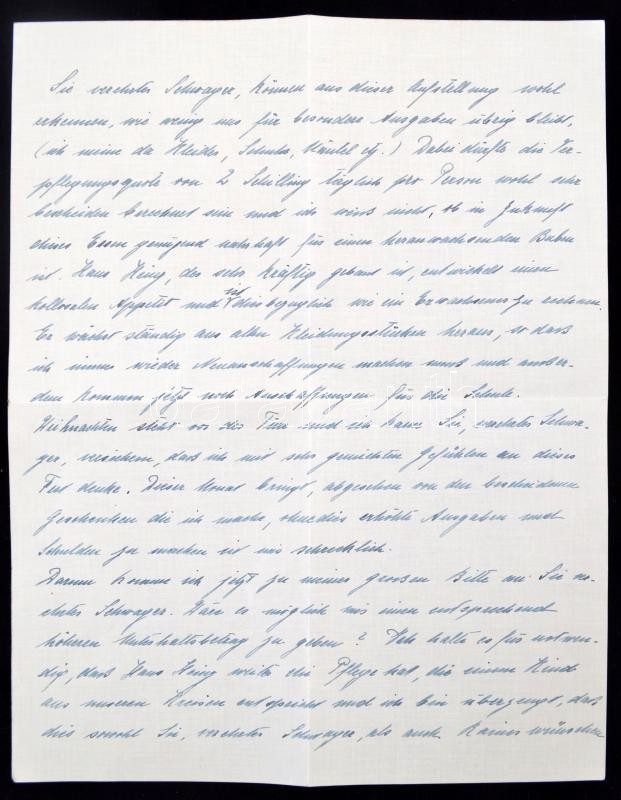 Sie verehrter Schwager, können aus dieser Aufstellung wohl
erkennen, wie wenig uns für besondere Ausgaben übrig bleibt,
(ich meine da Kleider, Schuhe, Mäntel etz.) Dabei dürfte die Ver-
pflegungsquote von 2 Schilling täglich pro Person wohl sehr
bescheiden berechnet sein und ich weiß nicht, ob in Zukunft
dieses Essen genügend nahrhaft für einen heranwachsenden Buben
ist. Hans Heinz, der sehr kräftig gebaut ist, entwickelt einen
kollosalen Appetit und ist diesbezüglich wie ein Erwachsener zu rechnen.
Er wächst ständig aus allen Kleidungsstücken heraus, so daß
ich immer wieder Neuanschaffungen machen muß und ausser-
dem kommen jetzt noch Anschaffungen für die Schule.
Weihnachten steht vor der Türe und ich kann Sie, verehrter Schwa-
ger, versichern, daß ich mit sehr gemischten Gefühlen an dieses
Fest denke. Dieser Monat bringt, abgesehen von den bescheidenen
Geschenken die ich mache, ohnedies erhöhte Ausgaben und
Schulden zu machen ist mir schrecklich.
Darum komme ich jetzt zu meiner grossen Bitte an Sie ver-
ehrter Schwager. Wäre es möglich mir einen entsprechend
höheren Unterhaltsbetrag zu geben? Ich halte es für notwen-
dig, daß Hans Heinz weiter die Pflege hat, die einem Kind
aus unseren Kreisen entspricht und ich bin überzeugt, daß
dies sowohl Sie, verehrter Schwager, als auch Rainer wünschen